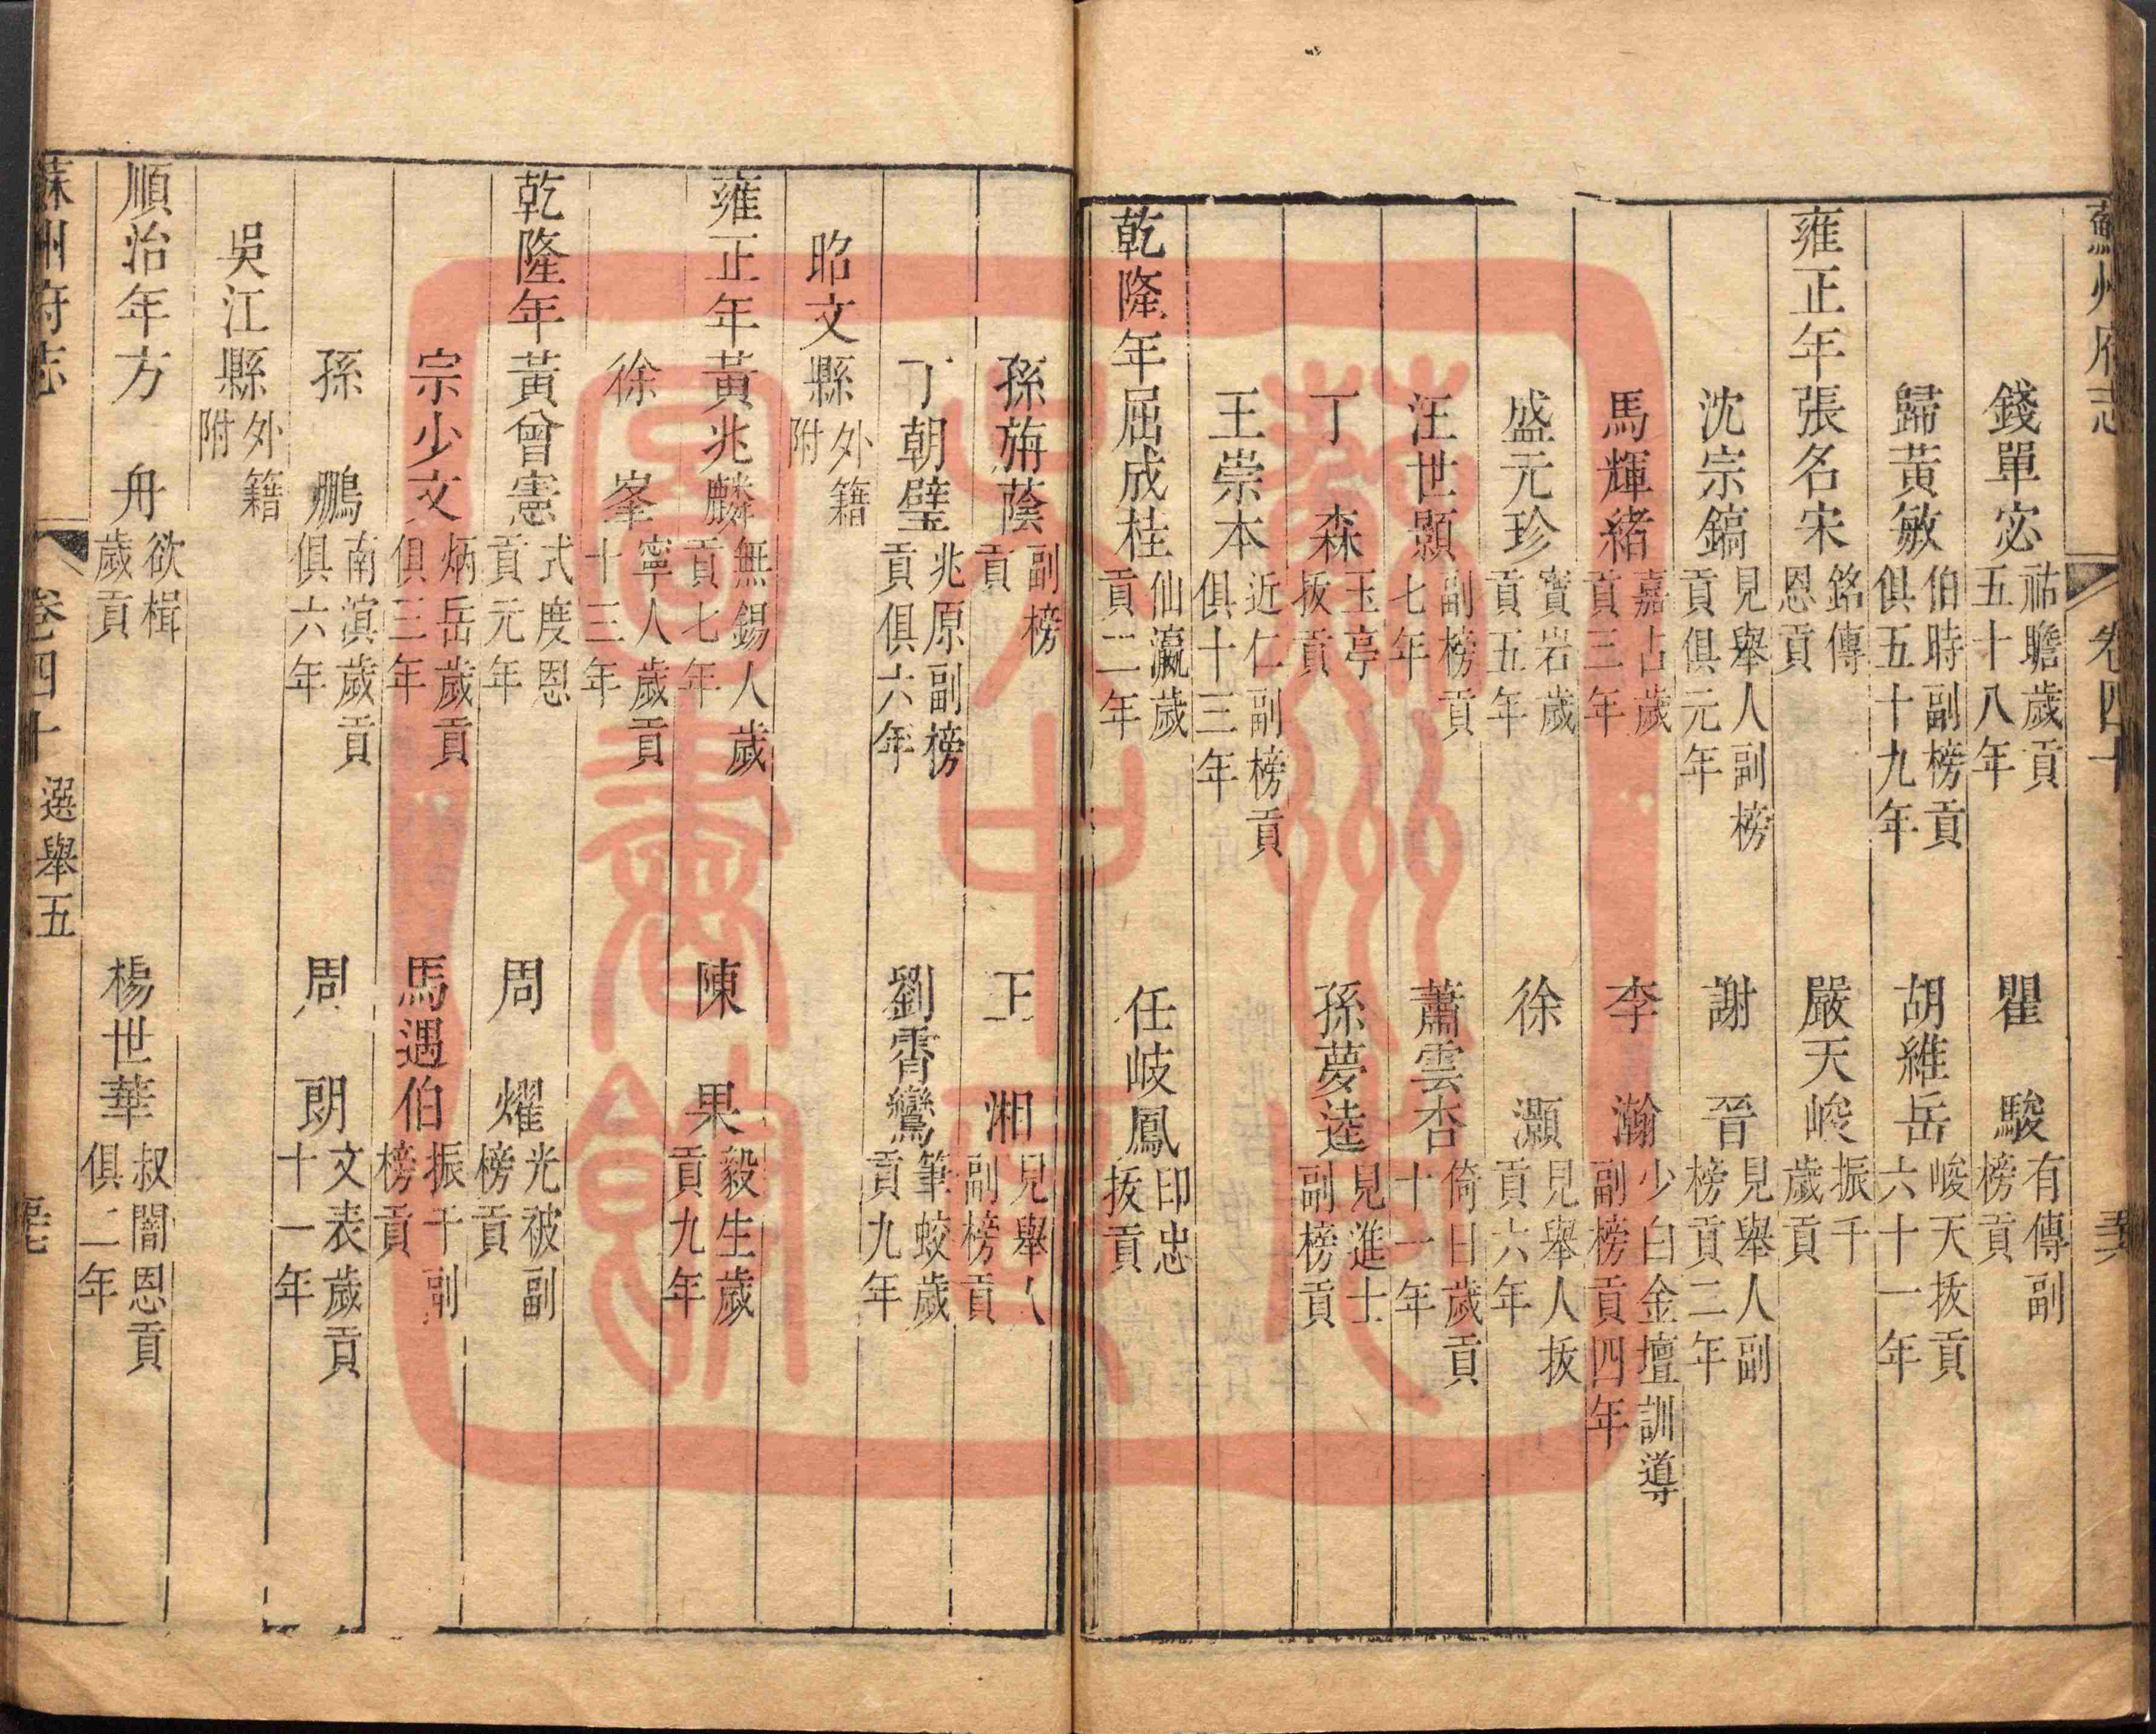 蘇州府志 卷四十
錢單宓 祐瞻歲貢五十八年 瞿駿 有傳副榜貢
歸黃敏 伯時副榜貢俱五十九年 胡維岳 峻天拔貢六十一年
雍正年張名宋 銘傳恩貢 嚴天峻 振千歲貢
沈宗鎬 見舉人副榜貢俱元年 謝晉 見舉人副榜貢二年
馬輝緒 嘉占歲貢三年 李瀚 少白金壇訓導副榜貢四年
盛元珍 寶岩歲貢五年 徐灝 見舉人拔貢六年
汪世顯 副榜貢七年 蕭雲杏 倚日歲貢十一年
丁森 玉亭拔貢 孫夢逵 見進士副榜貢
王崇本 近仁副榜貢俱十三年
乾隆年屈成桂 仙瀛歲貢二年 任岐鳳 印忠拔貢
孫旃蔭 副榜貢 王湘 見舉人副榜貢
丁朝璧 兆原副榜貢俱六年 劉霄鸞 筆蛟歲貢九年
昭文縣 外籍附
雍正年黃兆麟 無錫人歲貢七年 陳果 毅生歲貢九年
徐峯 寧人歲貢十三年
乾隆年黃曾憲 式度恩貢元年 周燿 光被副榜貢
宗少文 炳岳歲貢俱三年 馬遇伯 振千副榜貢
孫鵬 南溟歲貢俱六年 周朗 文表歲貢十一年
吳江縣 外籍附
順治年方舟 欲楫歲貢 楊世華 叔闇恩貢俱二年
蘇州府志 卷四十 選舉五